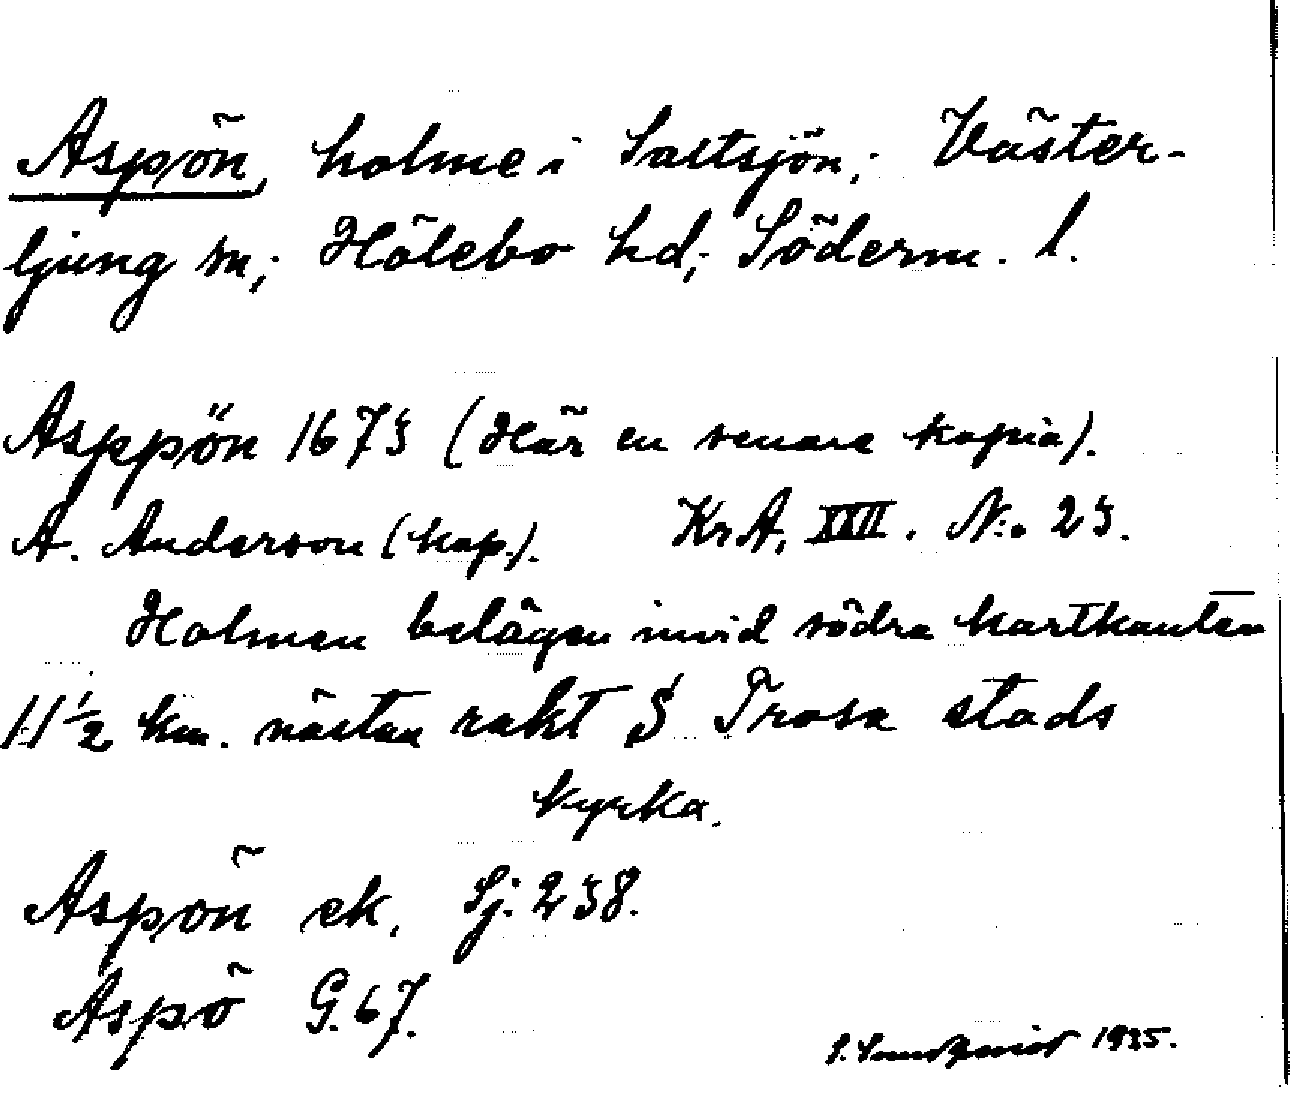 Aspön, holme i Saltsjön; Väster-
ljung sn; Hölebo hd; Söderm. l.
Asppön 1675 (Här en senare kopia).
A. Anderson (kop.). Kr.A. XXII. N:o 25.
Holmen belägen invid södra kartkanten
11 1/2 km. nästan rakt S Trosa stads
kyrka.
Aspön ek. Sj. 258.
Aspö G. 67.
1935.